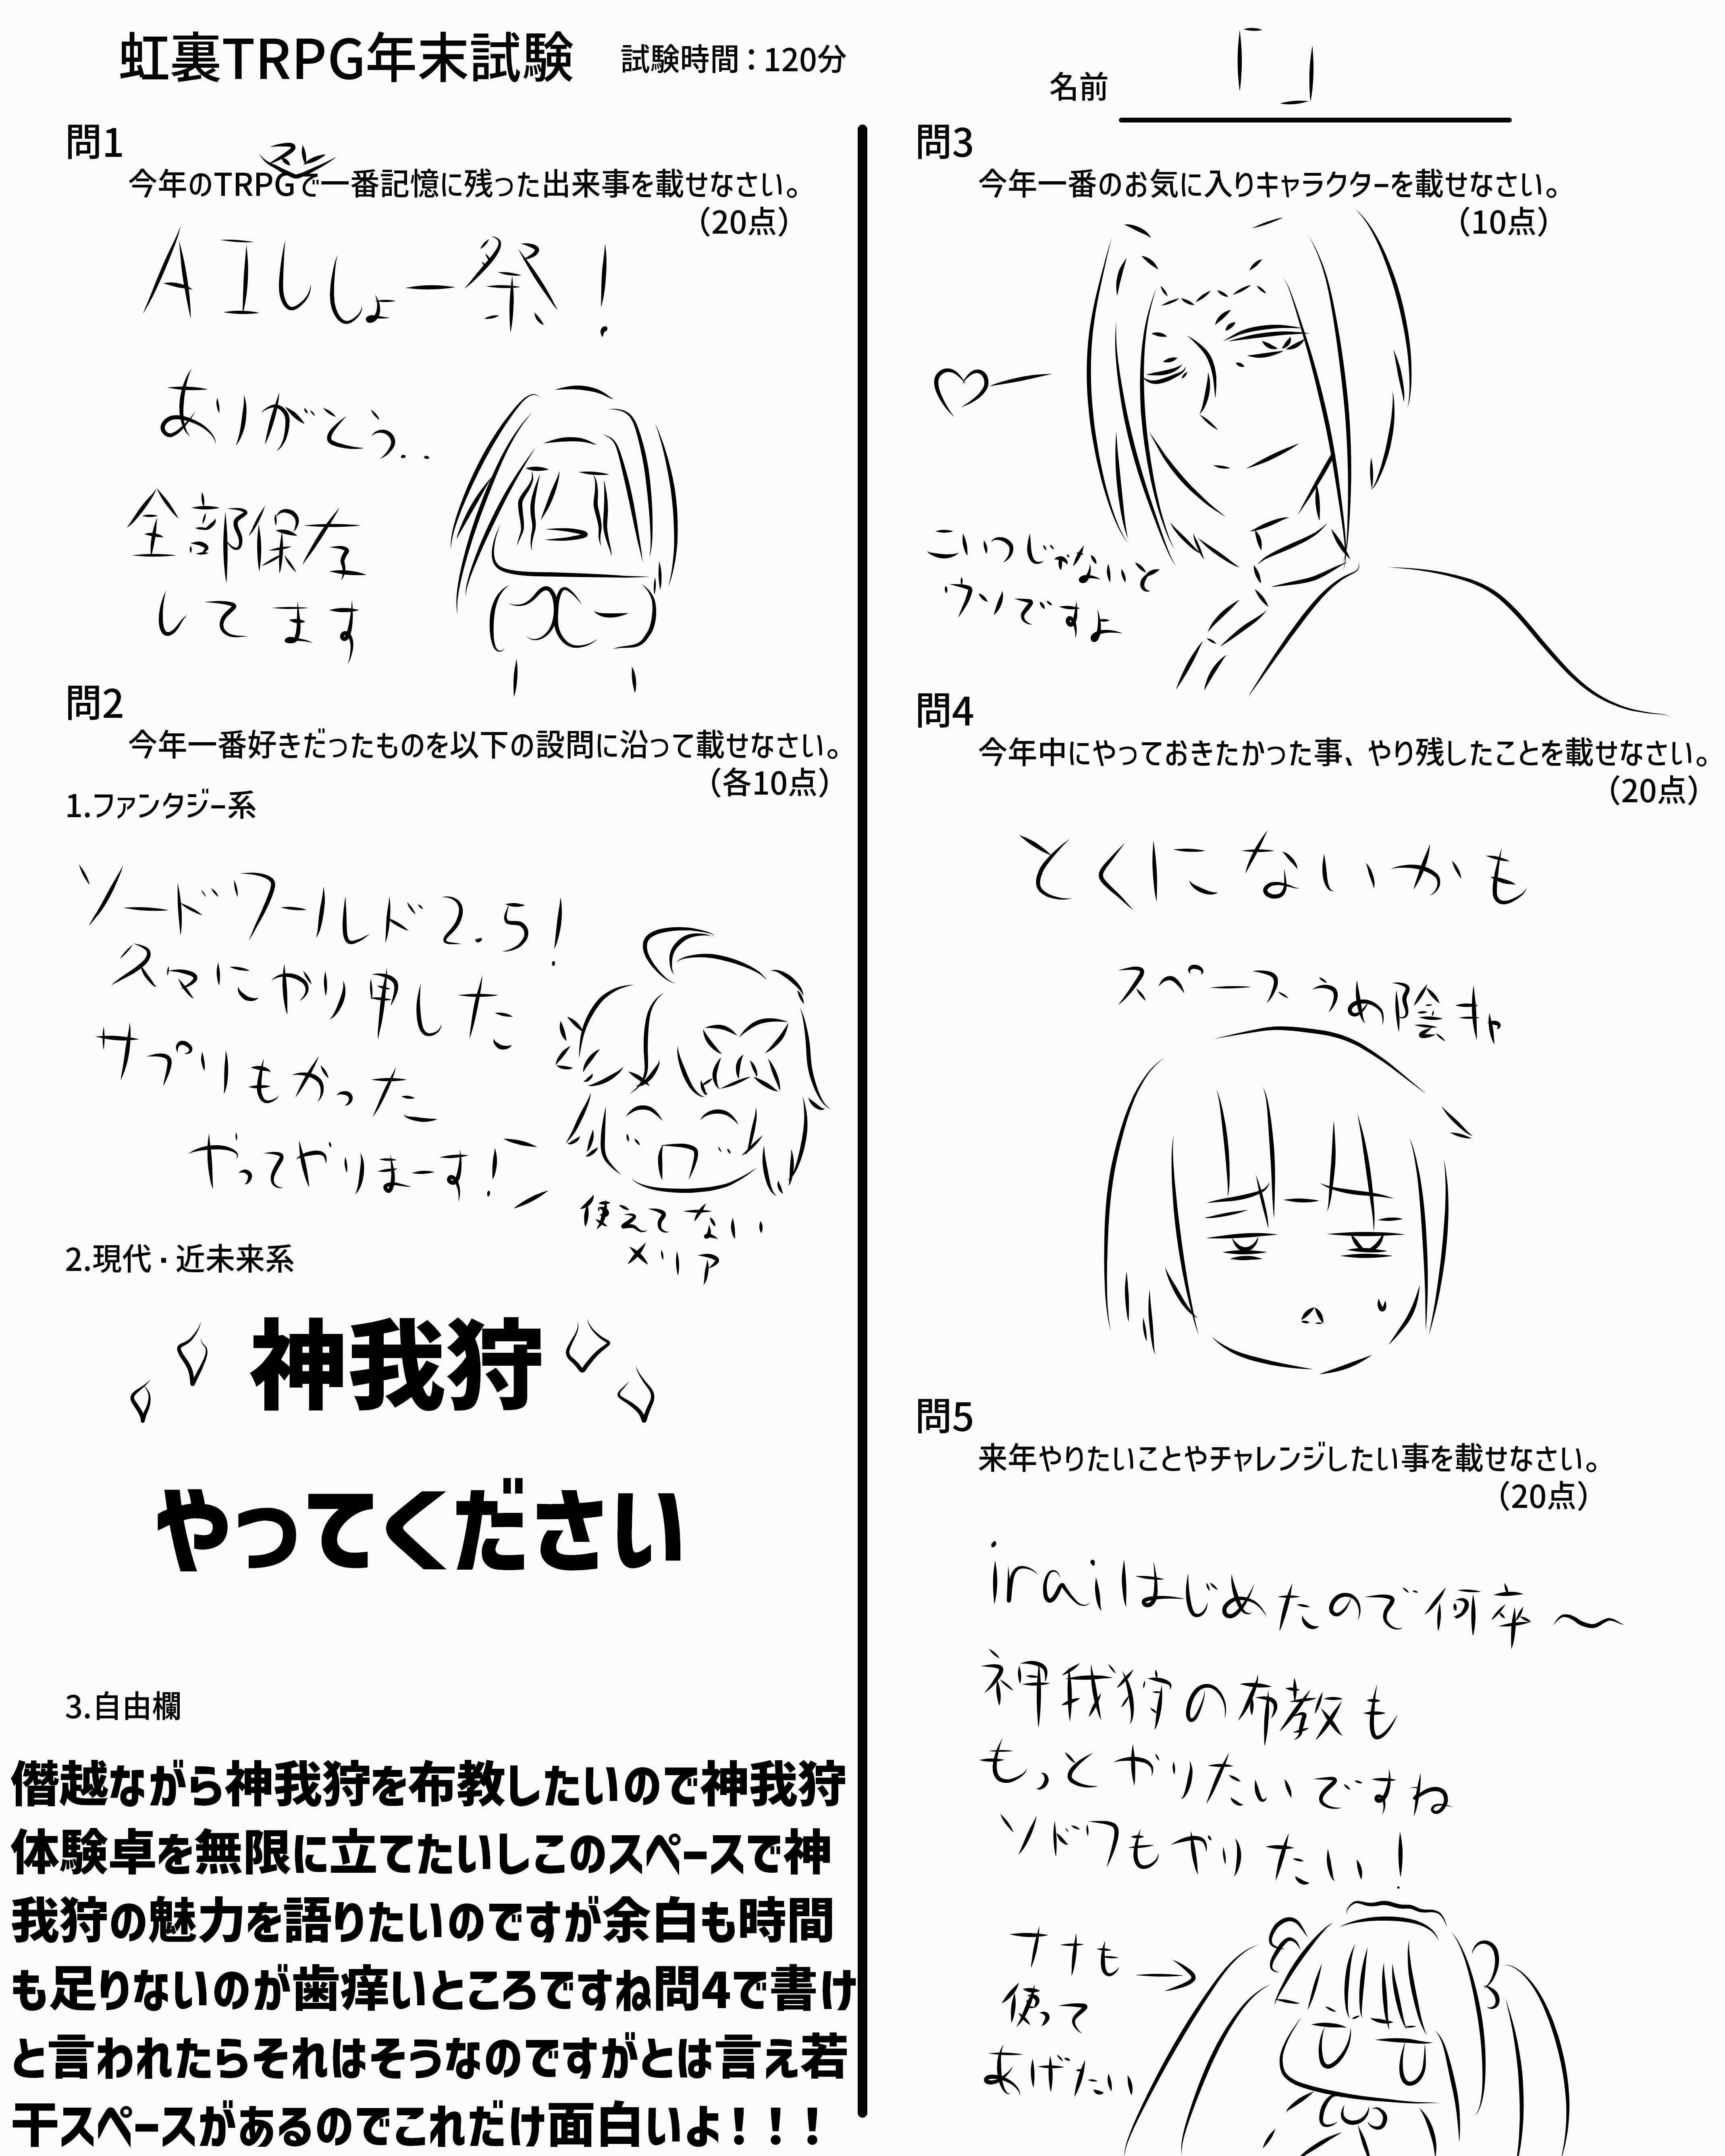 虹裏TRPG年末試験
試験時間：120分
名前
「」
問1
スレ
今年のTRPGで一番記憶に残った出来事を載せなさい。
（20点）
AIしょー祭！
ありがとう..
全部保存
してます
問2
今年一番好きだったものを以下の設問に沿って載せなさい。
（各10点）
1.ファンタジー系
ソードワールド2.5！
久々にやり申した
サプリもかった
やってやりまーす！
使えてない
メリア
2.現代・近未来系
神我狩
やってください
3.自由欄
僭越ながら神我狩を布教したいので神我狩
体験卓を無限に立てたいしこのスペースで神
我狩の魅力を語りたいのですが余白も時間
も足りないのが歯痒いところですね問4で書け
と言われたらそれはそうなのですがとは言え若
干スペースがあるのでこれだけ面白いよ！！！
問3
今年一番のお気に入りキャラクターを載せなさい。
（10点）
こいつじゃないと
ウソですよ
問4
今年中にやっておきたかった事、やり残したことを載せなさい。
（20点）
とくにないかも
スペースうめ陰キャ
問5
来年やりたいことやチャレンジしたい事を載せなさい。
（20点）
iraiはじめたので何卒〜
神我狩の布教も
もっとやりたいですね
ソドワもやりたい！
ナナも→
使って
あげたい